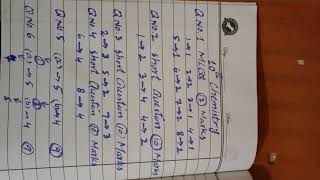 10th Chemistry
Q No.1 MCQS (12) Marks
1→1 2→2 3→1 4→1
5→1 6→2 7→2 8→2
Q NO.2 Short Question (10) Marks
1→2 3→4 4→2
Q NO.3 Short Question (10) Marks
2→3 5→2 7→3
Q NO.4 Short Question (10) Marks
6→4 8→4
Q NO 5 (a)→5 (b)→4 (9)
Q NO 6 (a)→5 (b)→4 (9)